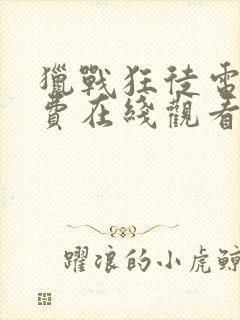 獵戰狂徒雷
費在綫觀看
躍浪的小虎鯨